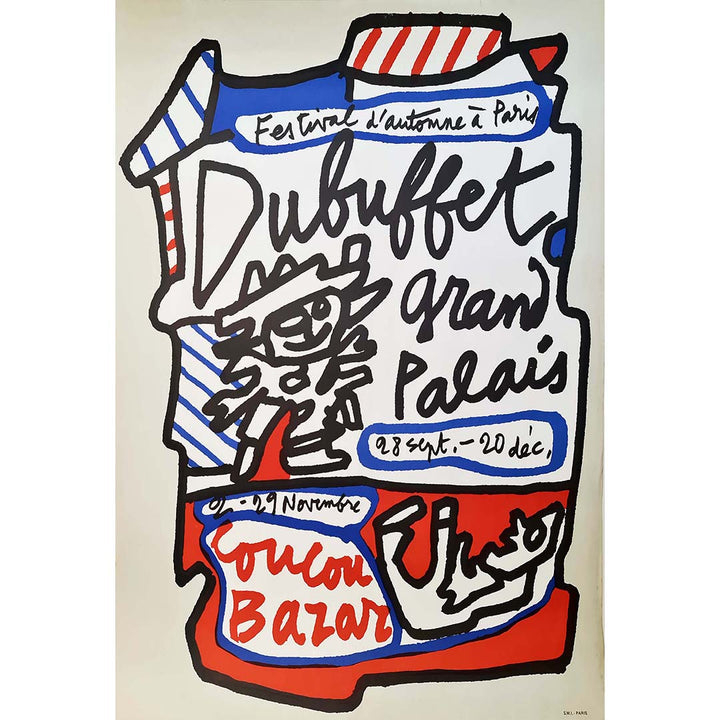 Festival d'automne à Paris
Dubuffet
grand
Palais
28 sept. - 20 déc.
2 - 29 Novembre
Coucou
Bazar
S.M.I. - PARIS